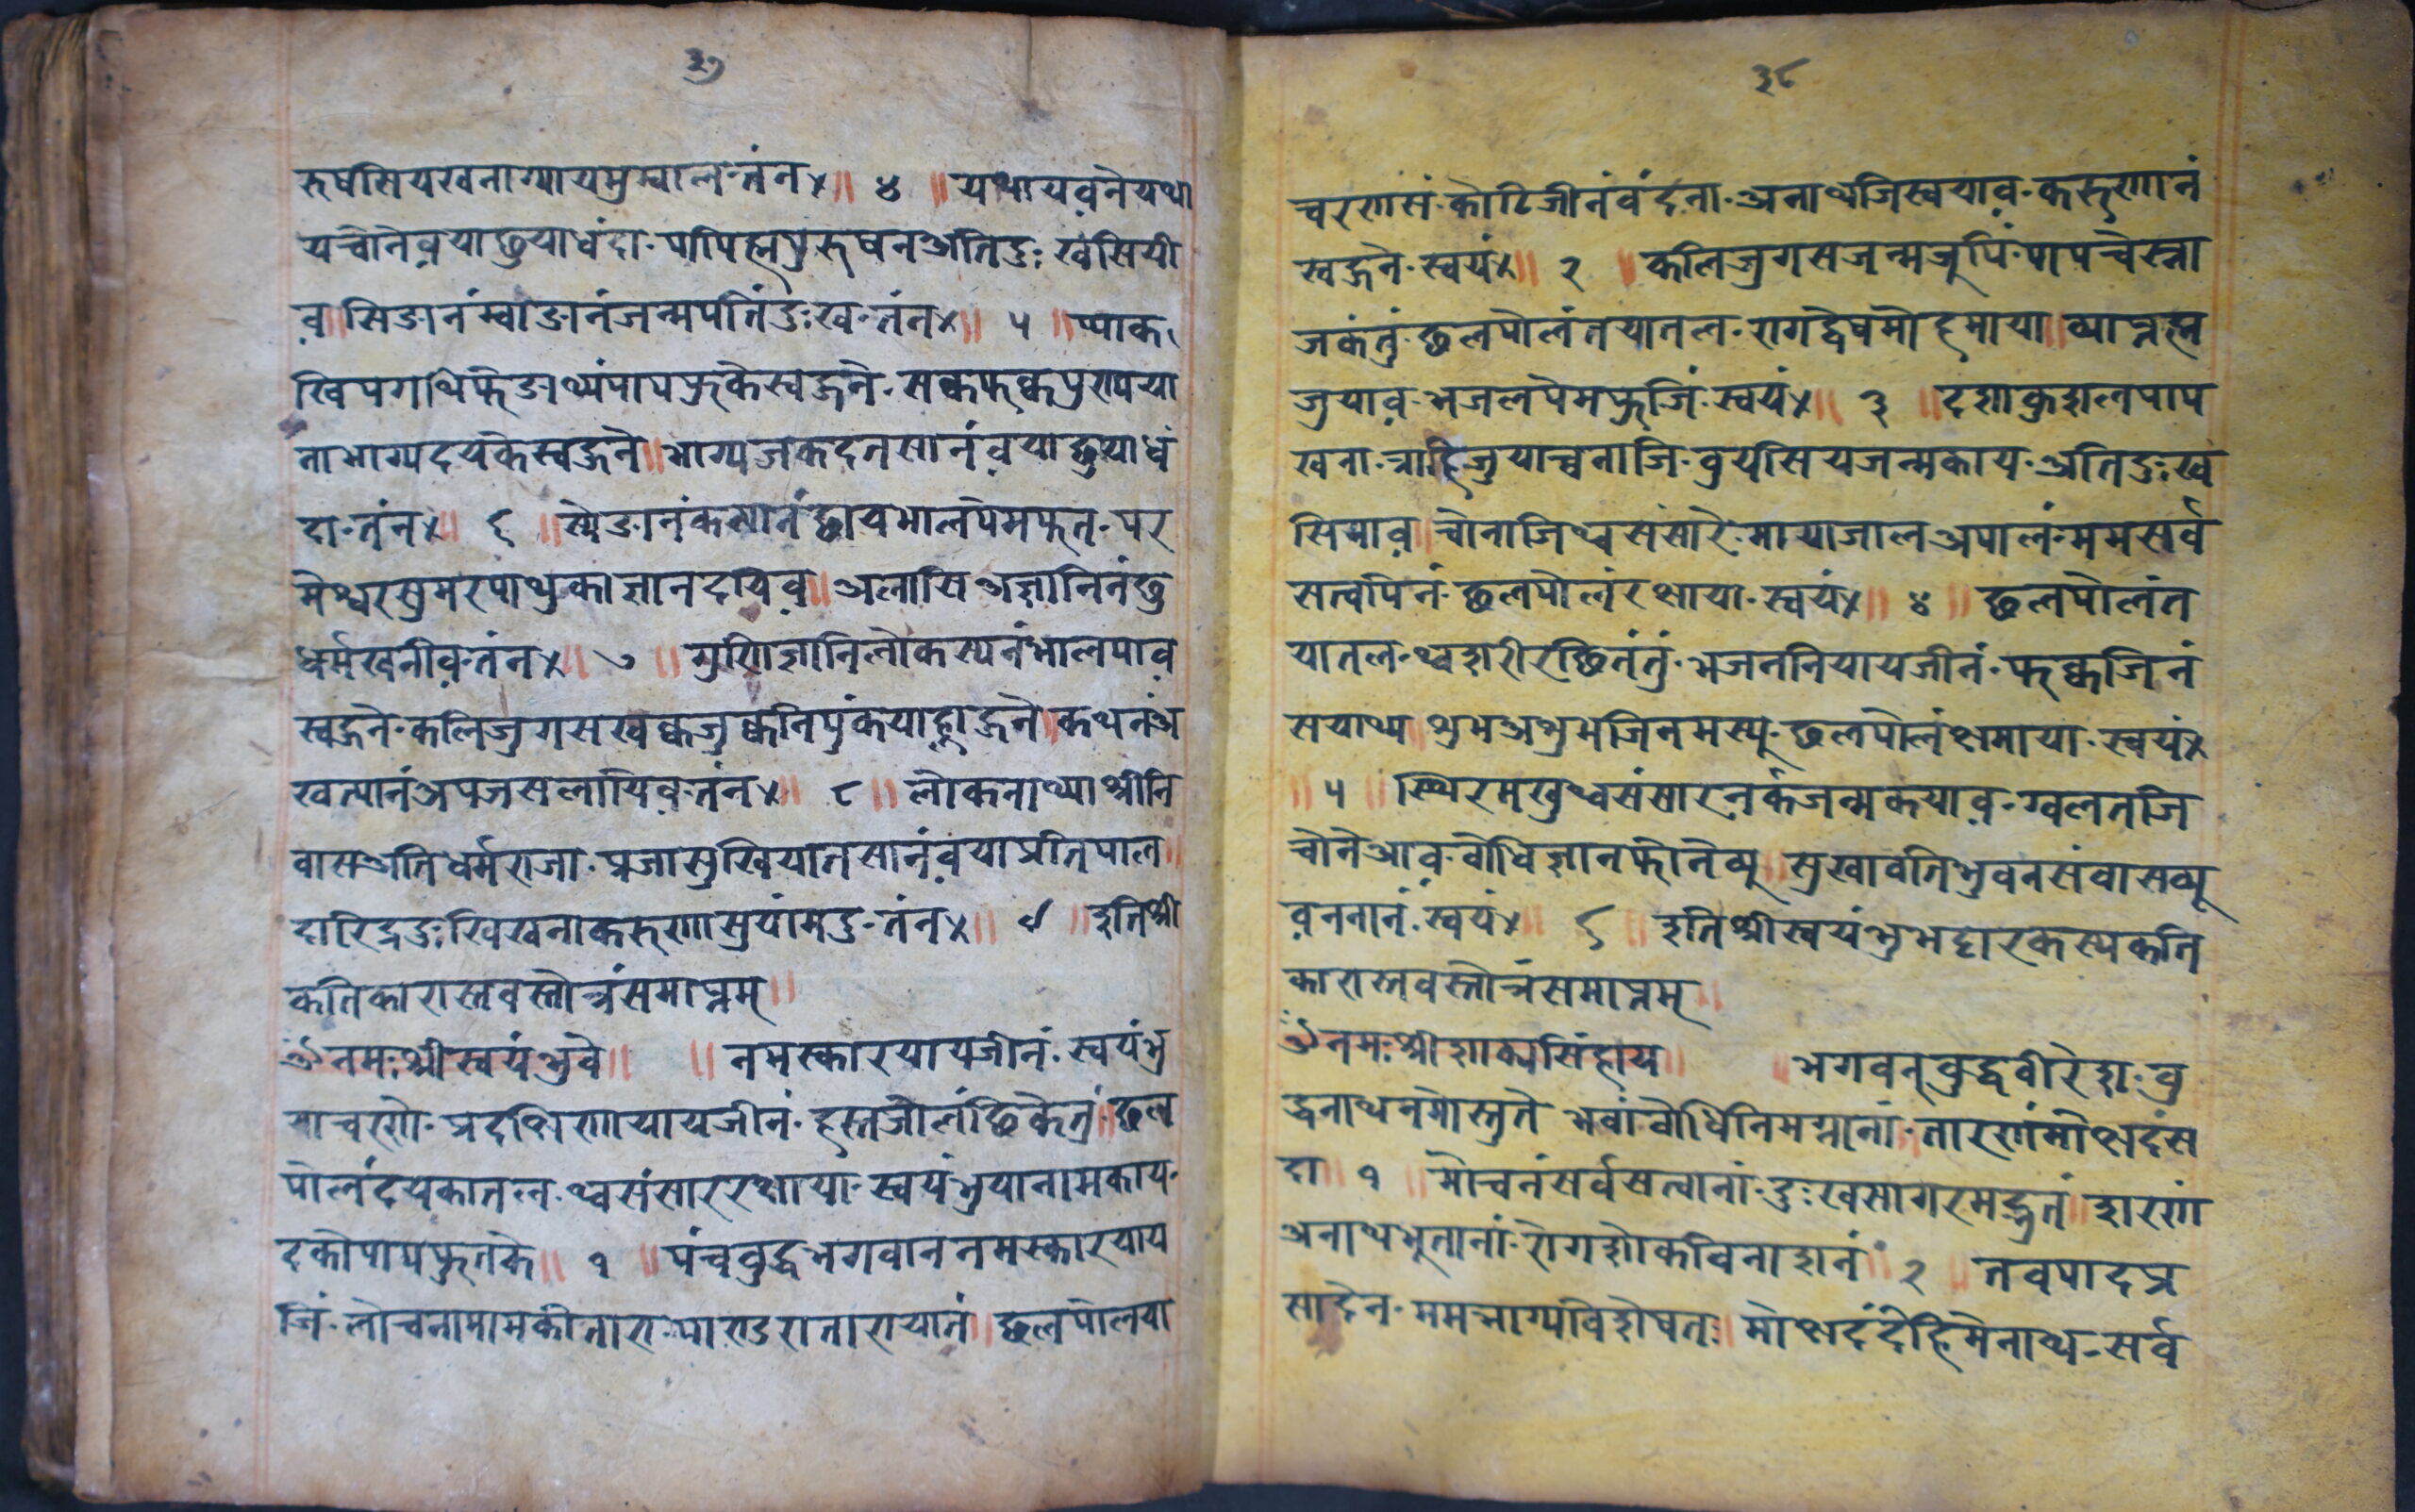 ३७
रुषसियखनाग्यायमुम्वाल॰तंन४॥ ४ ॥यथायव़नेयथा
यचोनेव़याछुयाधंदा॰पापिह्मपुरुषनअतिदुःखंसियी
व़॥सिङानंम्वाङानंजन्मपतिंदुःख॰तंन४॥ ५ ॥प्याक
खिपगथिफैङाथ्यंपापफुकेस्वह्रने॰सकफुकपुरापया
नाभाग्यदयकेस्वह्रने॥भाग्यजकदतसानंव़याछुयाधं
दा॰तंन४॥ ६ ॥स्येङानंकनानंछायभालपेमफुत॰पर
मेश्वरसुमरपाथुकाज्ञानदयिव़॥अलासिअज्ञानिनंछु
धर्मखनीव़॰तंन४॥ ७ ॥गुणिज्ञानिलोकस्यनंभालपाव
स्वह्रने॰कलिजुगसखकजुकनिपुंकयाह्लाह्रने॥कथनंअ
खत्यानंअपजसलायिव़॰तंन४॥ ८ ॥लोकनाथ्याश्रीनि
वासअतिधर्मराजा॰प्रजासुखियातसानंव़याप्रीतपाल॥
दारिद्रदुःखिखनाकरुणासुयांमदु॰तंन४॥ ९ ॥इतिश्री
कतिकारास्तवस्तोत्रंसमाप्तम्॥
ॐनमःश्रीस्वयंभुवे॥ ॥नमस्कारयायजीनं॰स्वयंभु
याचरणे॰प्रदक्षिणायायजीनं॰हस्तजोलंछिकेतुं॥छल
पोलंदयकातल॰थ्वसंसाररक्षाया॰स्वयंभुयानामकाय॰
दकोपापफुतके॥ १ ॥पंचबुद्धभगवाननमस्कारयाय
जिं॰लोचनामामकीतारा॰पाण्डरातारायातं॥छलपोलया
३८
चरणसं॰कोटिजीनंवंदना॰अनाथजिस्वयाव़॰करुणानं
स्वह्रने॰स्वयं४॥ २ ॥कलिजुगसजन्मजुपिं॰पापचेस्ना
जकंतुं॰छलपोलंतयातल॰रागद्वेषमोहमाया॥व्याप्तह्म
जुयाव़॰भजलपेमफुजिं॰स्वयं४॥ ३ ॥दशाकुशलपाप
खना॰त्राहिजुयाच्वनाजि॰वुयसियजन्मकाय॰अतिदुःख
सियाव़॥चोनाजिथ्वसंसारे॰मायाजालअपालं॰ममसर्व
सत्वपिनं॰छलपोलंरक्षाया॰स्वयं४॥ ४ ॥छलपोलंत
यातल॰थ्वशरीरछितंतुं॰भजननियायजीनं॰फुकजिनं
सयाथ्य॥शुभअशुभजिनमस्यु॰छलपोलंक्षमाया॰स्वयं४
॥ ५ ॥स्थिरमखुथ्वसंसारनर्कजन्मकयाव़॰ग्वलतजि
चोनेआव॰बोधिज्ञानफोनेव्यु॥सुखावतिभुवनसंवासव्यू
व़ननानं॰स्वयं४॥ ६ ॥इतिश्रीस्वयंभुभट्टारकस्यकति
कारास्तवस्तोत्रंसमाप्तम्॥
ॐनमःश्रीशाक्यसिंहाय॥ ॥भगवन्बुद्धवीरेशः॰बु
द्धनाथनमोस्तुते॰भवांबोधिनिमग्नानां॰तारणंमोक्षदंस
दा॥ १ ॥मोचनंसर्वसत्वानां॰दुःखसागरमद्भुतं॥शरणं
अनाथभुतानां॰रोगशोकविनाशनं॥ २ ॥तवपादप्र
सादेन॰ममभाग्यविशेषतः॥मोक्षदंदेहिमेनाथ॰सर्व